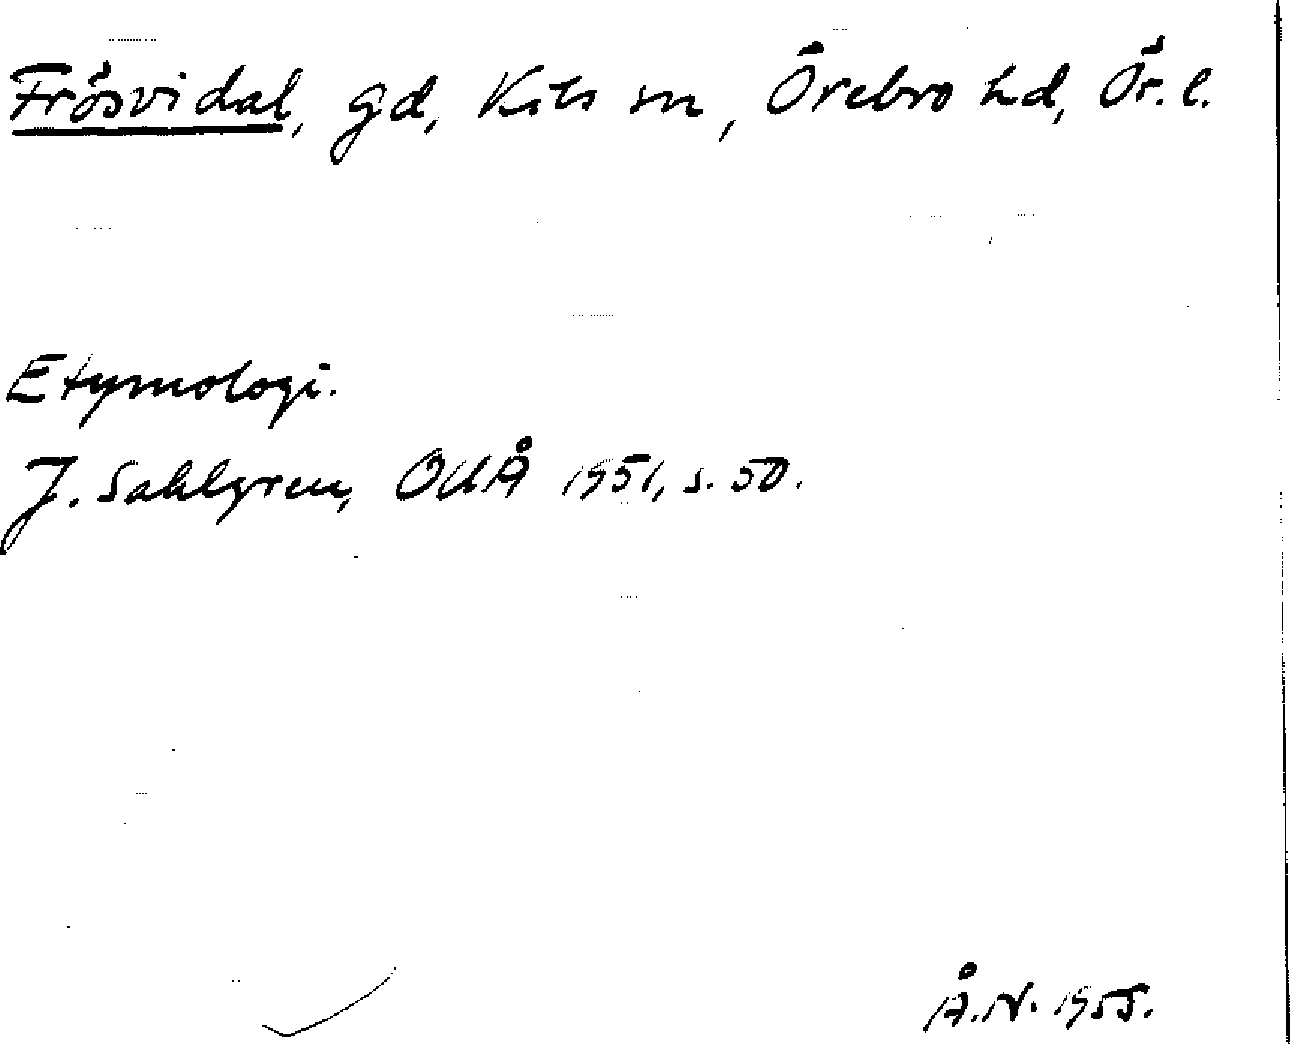 Frösvidal, gd, Kils sn, Örebro hd, Ör. l.
Etymologi.
J. Sahlgren, OUÅ 1951, s. 50.
Å.N. 1955.